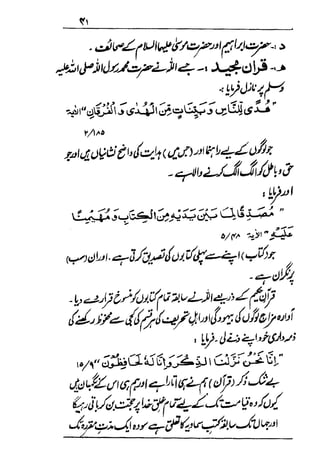 ۴۱
د:۔ حضرت ابراہیم اور حضرت موسیٰ علیہما السلام کے صحائف ۔
ھ:۔ قرآن مجید :۔ جسے اللہ نے حضرت محمد رسول اللہ صلی اللہ علیہ
وسلم پر نازل فرمایا :
"هُدًى لِّلنَّاسِ وَبَيِّنَاتٍ مِّنَ الْهُدٰى وَالْفُرْقَانِ" الآیة
۲/۱۸۵
جو لوگوں کے لیے راہنما اور (جس میں) ہدایت کی واضح نشانیاں ہیں اور جو
حق و باطل کو الگ الگ کرنے والا ہے ۔
اور فرمایا :
"مُصَدِّقًا لِّمَا بَيْنَ يَدَيْهِ مِنَ الْكِتَابِ وَمُهَيْمِنًا
عَلَيْهِ" الآیة ۵/۴۸
جو (کتاب) اپنے سے پہلی کتابوں کی تصدیق کرتی ہے ۔ اور ان (سب)
پر نگران ہے ۔
قرآن حکیم کے ذریعے اللہ نے سابقہ تمام کتابوں کو منسوخ قرار دے دیا ۔
آوارہ مزاج لوگوں کی بیہودگی اور اہل تحریف کی ہر قسم کی کجی سے محفوظ رکھنے کی
ذمہ داری خود اپنے ذمے لی ۔ فرمایا :
"اِنَّا نَحْنُ نَزَّلْنَا الذِّكْرَ وَاِنَّا لَهُ لَحَافِظُوْنَ" ۱۵/۹
بے شک ذکر (قرآن) ہم نے ہی اتارا ہے اور ہم ہی اس کے نگہبان ہیں
کیوں کہ وہ قیامت تک کے لیے تمام خلق خدا پر حجت بن کر باقی رہیگا
اور جہاں تک سابقہ کتب سماویہ کا تعلق ہے سو وہ ایک مدت مقررہ تک